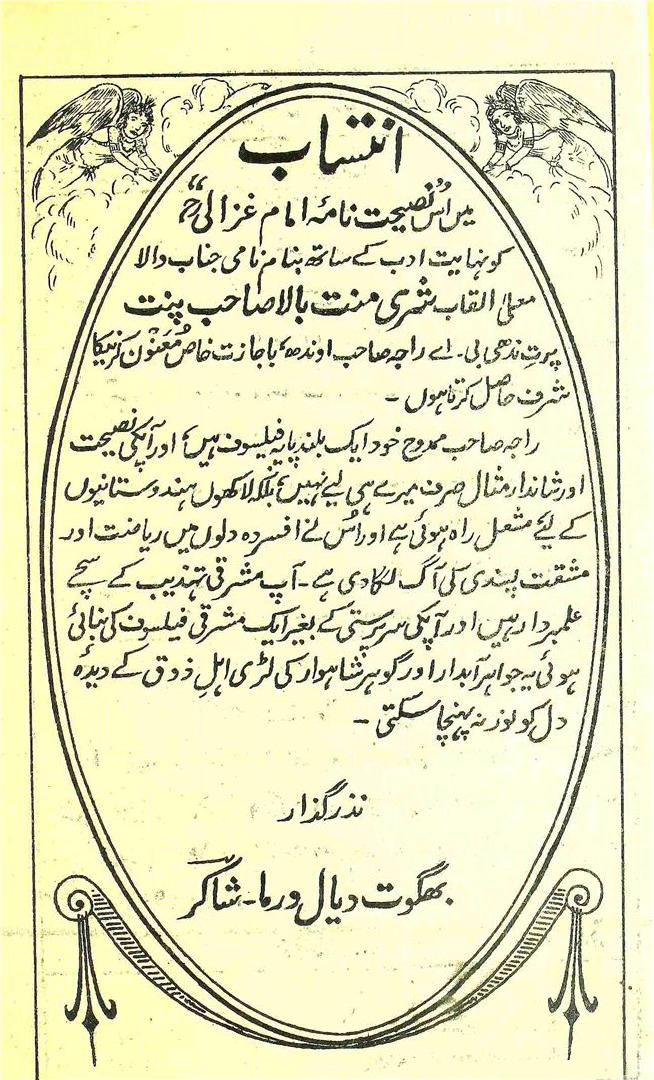 انتساب
میں اس نصیحت نامۂ امام غزالی رح
کو نہایت ادب کے ساتھ بنام نامی جناب والا
معلیٰ القاب شری منت بالا صاحب پنت
پرت ندھی بی۔ اے راجہ صاحب اوندھ، باجازت خاص مُعَنْون کرنیکا
شرف حاصل کرتا ہوں ۔
راجہ صاحب ممدوح خود ایک بلند پایہ فیلسوف ہیں، اور آپکی نصیحت
اور شاندار مثال صرف میرے ہی لیے نہیں، بلکہ لاکھوں ہندوستانیوں
کے لیے مشعل راہ ہوئی ہے اور اُس نے افسردہ دلوں میں ریاضت اور
مشقت پسندی کی آگ لگا دی ہے ۔ آپ مشرقی تہذیب کے سچے
علمبردار ہیں اور آپکی سرپرستی کے بغیر ایک مشرقی فیلسوف کی بنائی
ہوئی یہ جواہر آبدار اور گوہر شاہوار کی لڑی اہلِ ذوق کے دیدۂ
دل کو نور نہ پہنچا سکتی ۔
نذر گذار
بھگوت دیال ورما۔ شاکر